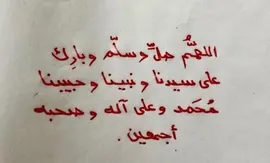 اللهُمَّ صلِّ وسلِّم وبارِك
على سيدنا ونبينا وحبيبنا
مُحَمد وعلى آله وصحبه
أجمعين.